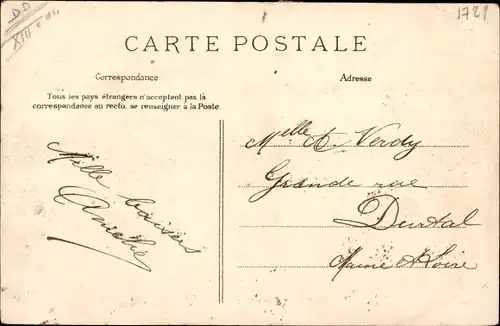 1721
CARTE POSTALE
Correspondance
Adresse
Tous les pays étrangers n'acceptent pas la
correspondance au recto, se renseigner à la Poste.
Mille baisers
Melle A. Verdy
Grande rue
Durtal
Maine & Loire